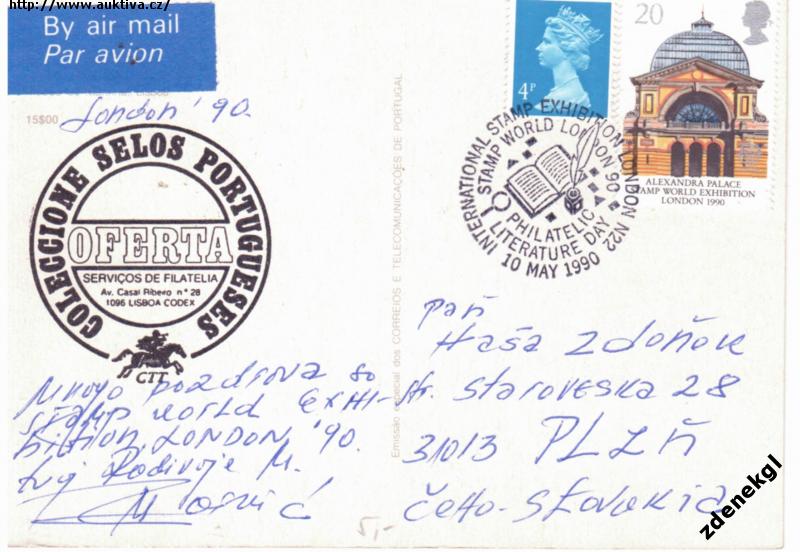 http://www.auktiva.cz/
By air mail
Par avion
15$00
London '90.
COLECCIONE SELOS PORTUGUESES
OFERTA
SERVIÇOS DE FILATELIA
Av. Casal Ribeiro n° 28
1096 LISBOA CODEX
CTT
Mnogo pozdrova so
stamp world exhi-
bition LONDON '90.
tvoj Radivoje M.
Emissão especial dos CORREIOS E TELECOMUNICAÇÕES DE PORTUGAL
4P
20
ALEXANDRA PALACE
STAMP WORLD EXHIBITION
LONDON 1990
INTERNATIONAL STAMP EXHIBITION LONDON N22
STAMP WORLD LONDON 90
PHILATELIC
LITERATURE DAY
10 MAY 1990
pañ
Haša Zdoňok
str. Staroveska 28
31013 PLZŇ
Čeho-Slovakia
5,-
zdenekgl